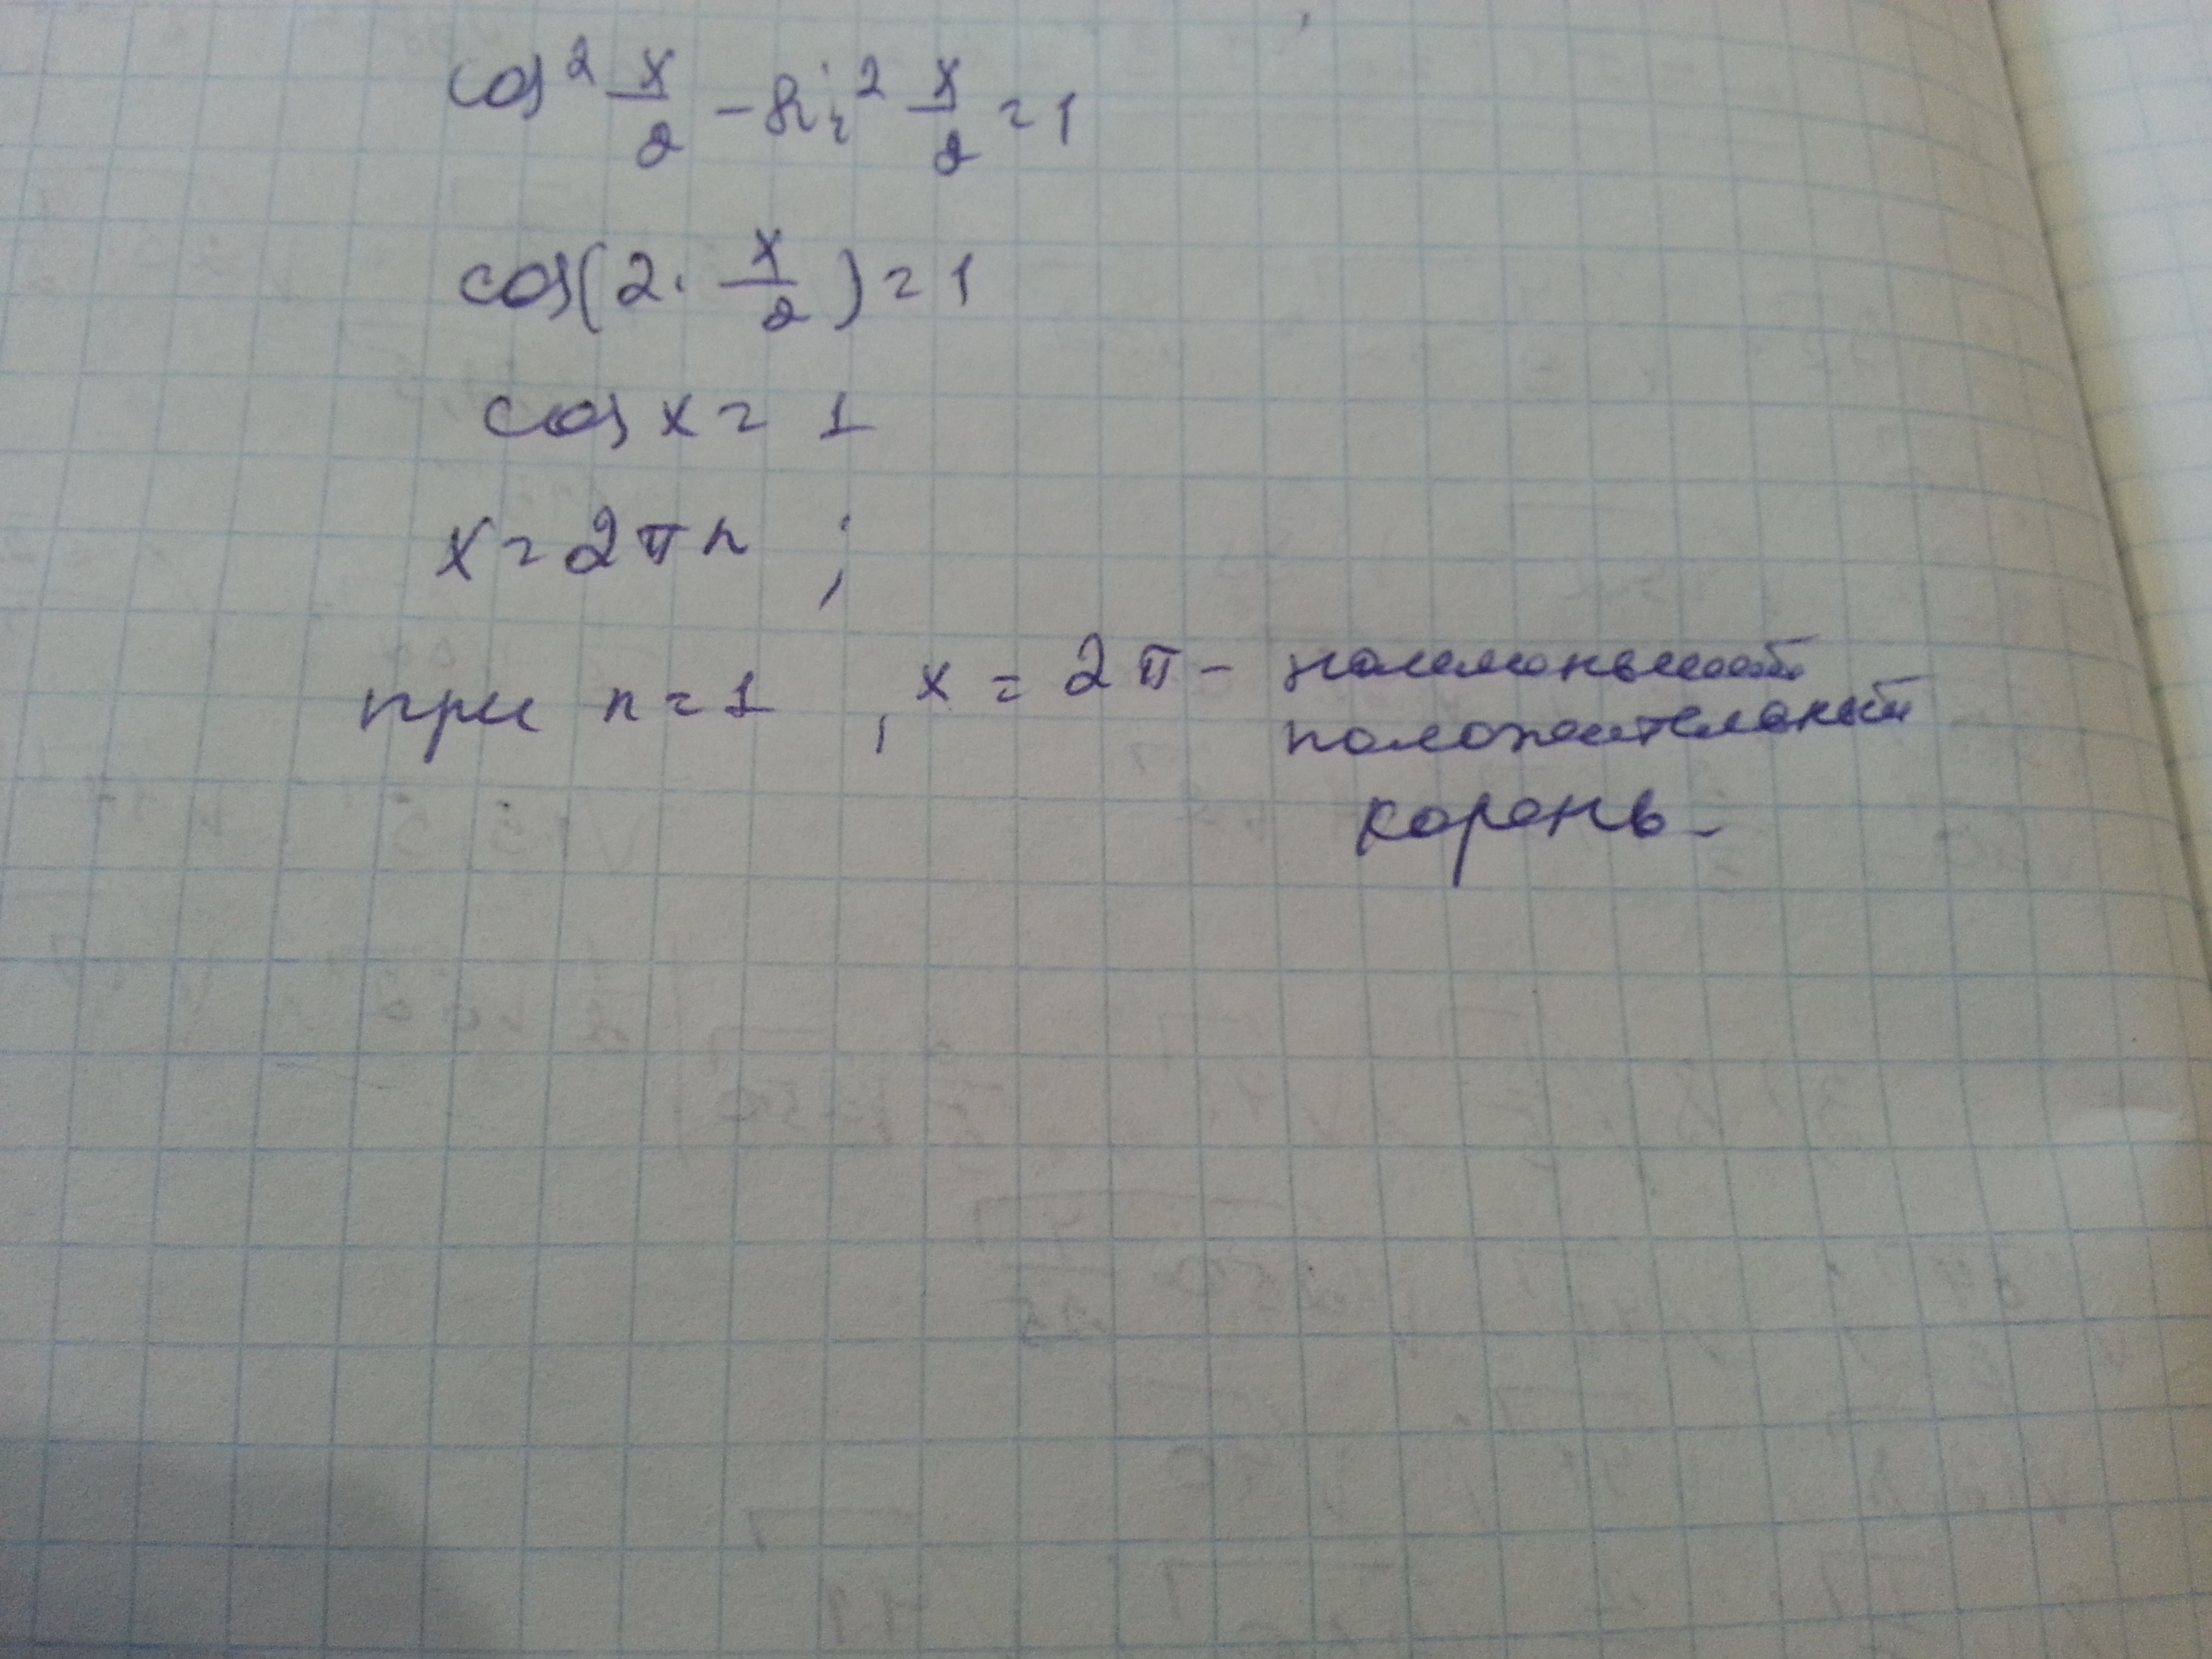 cos² x/2 - sin² x/2 = 1
cos(2 · x/2) = 1
cos x = 1
x = 2πn ;
при n = 1 , x = 2π - наименьший
положительный
корень